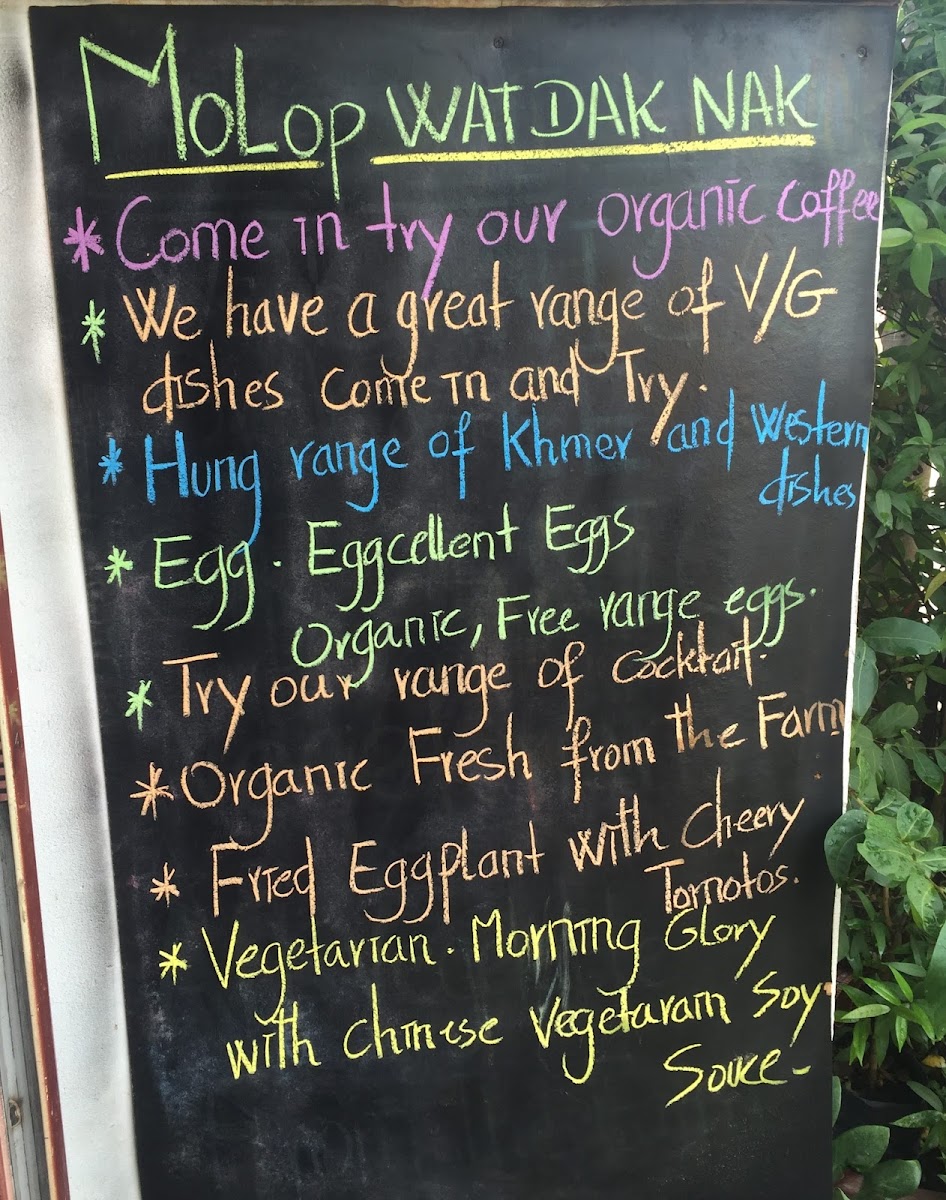 MOLOP WAT DAK NAK
* Come in try our organic coffee
* We have a great range of V/G
dishes come in and Try.
* Hung range of Khmer and western
dishes
* Egg. Eggcellent Eggs
Organic, Free range eggs.
* Try our range of cocktail.
* Organic Fresh from the Farm
* Fried Eggplant with cheery
Tomotos.
* Vegetarian. Morning Glory
with chinese vegetarain soy
Souce-